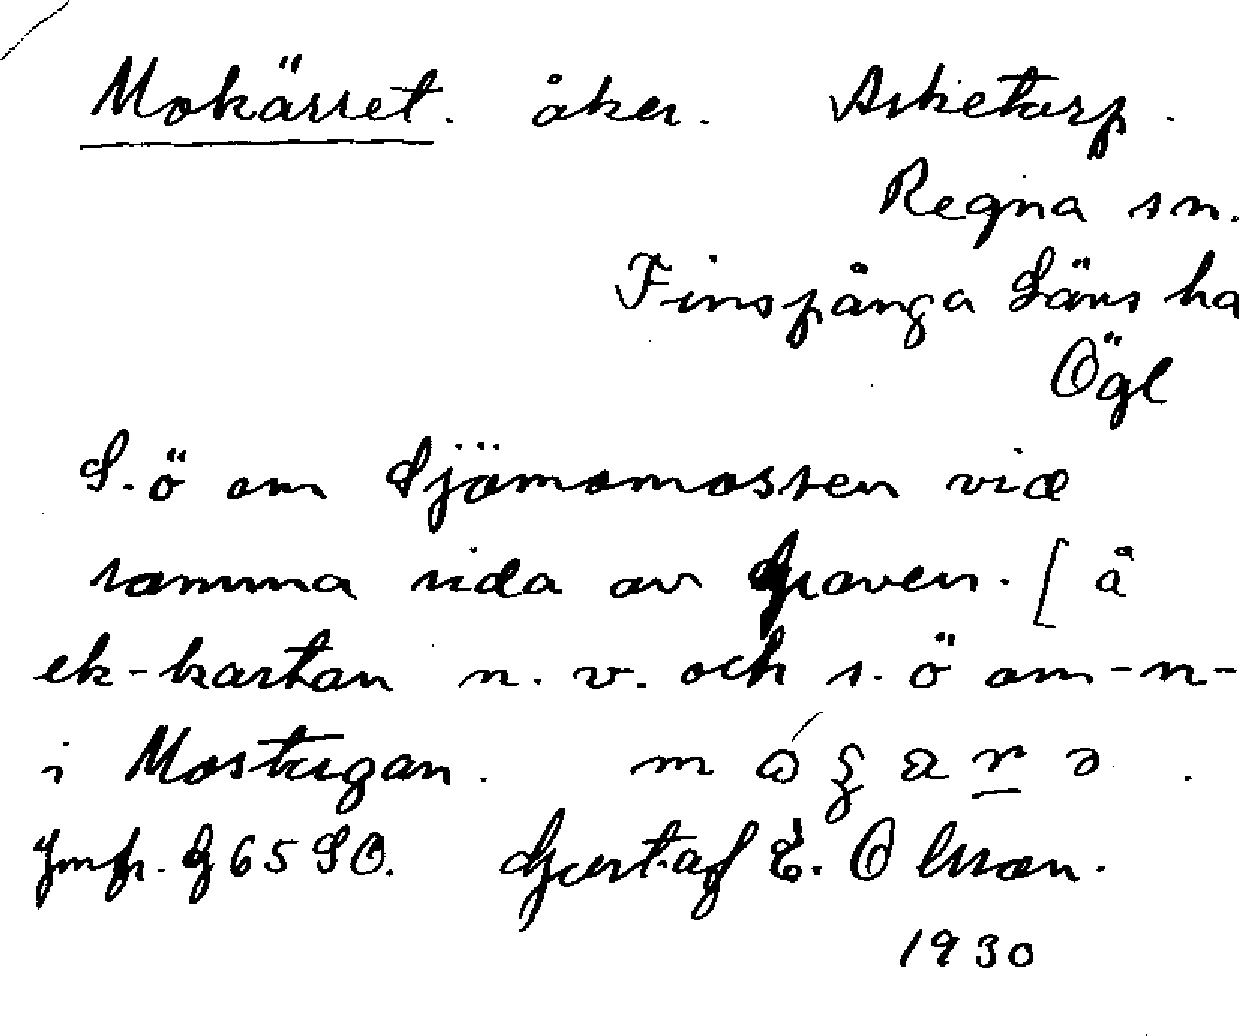 Mokärret. åker. Asketorp.
Regna sn.
Finspånga Läns hd
Ögl
S.ö om Sjömomossen vid
samma sida av Graven. [å
ek-kartan n.v. och s.ö om -n-
i Mostugan.
Jmfr. G 65 SO. Gustaf E. Olsson.
1930